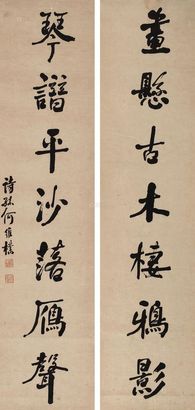 畫懸古木棲鴉影
琴譜平沙落雁聲
詩孫何維樸